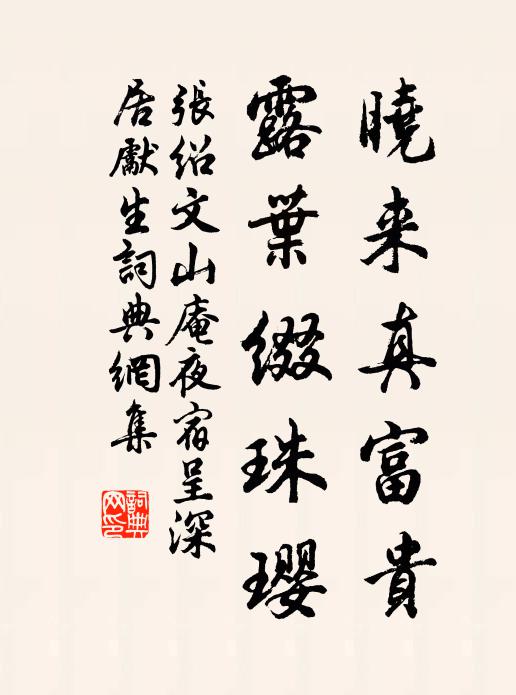 曉来真富貴
露葉綴珠瓔
張紹文山庵夜宿呈深
居獻生詞典網集
詞典網印